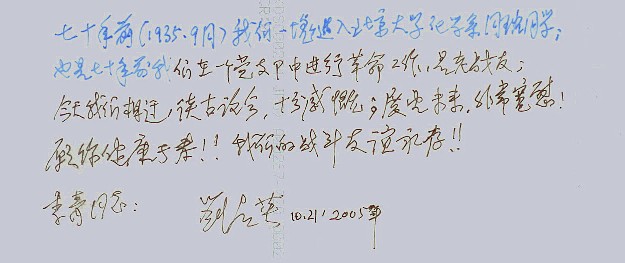 七十年前(1935.9月)我们一块进入北京大学化学系同班同学;
也是七十年前我们在一个党支部中进行革命工作,是老战友;
今天我们相逢,谈古论今,十分感慨;展望未来,非常宽慰!
愿你健康长寿!! 我们的战斗友谊永存!!
李青同志: 刘 英 10.21/2005年